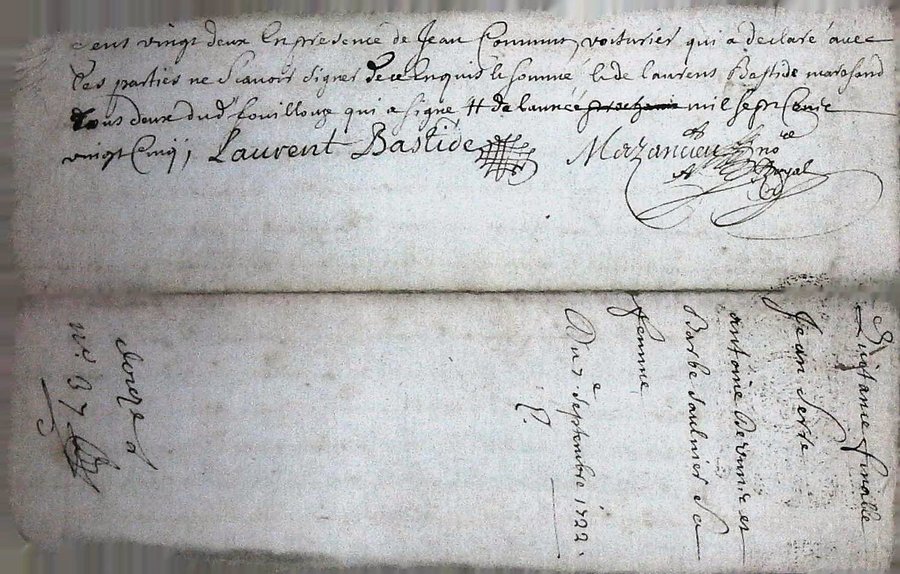 cent vingt deux En presence de Jean Commun, voiturier qui a declaré avec
les parties ne scavoir signer de ce Enquis et somme et de laurens Bastide marchand
tous deux dud fouillouze qui a signe # de lannée prochaine mil sept Cent
vingt Cinq ; Laurent Bastide Mazancieu no re
Royal
Quitance finalle
Jean Serre
antoine et
Barbe saulnier sa
femme
Du 7 e septembre 1722.
no. 37